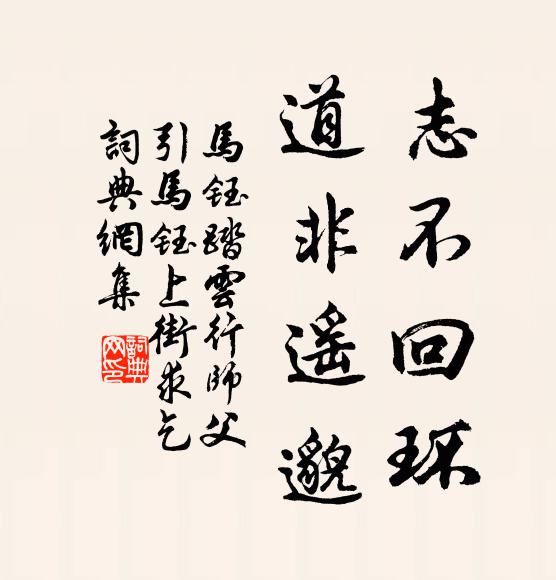 志不回环
道非遥邈
馬鈺踏雲行師父
引馬鈺上街求乞
詞典網集
詞典网印